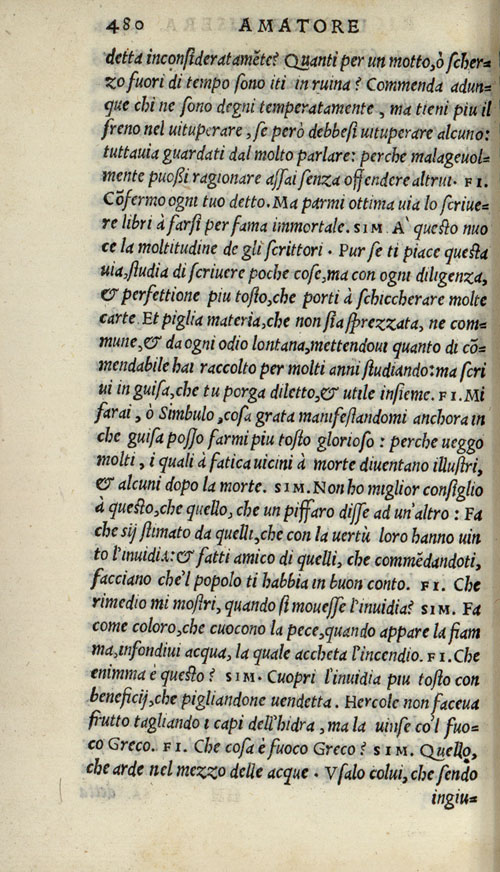 480 AMATORE
detta inconſideratamēte? Quanti per un motto,ò ſcher=
zo fuori di tempo ſono iti in ruina? Commenda adun=
que chi ne ſono degni temperatamente, ma tieni piu il
freno nel uituperare, ſe però debbeſi uituperare alcuno:
tuttauia guardati dal molto parlare: perche malageuol=
mente puoßi ragionare aſſai ſenza offendere altrui. FI.
Cōfermo ogni tuo detto. Ma parmi ottima uia lo ſcriue=
re libri à farſi per fama immortale. SIM. A' queſto nuo
ce la moltitudine de gli ſcrittori. Pur ſe ti piace queſta
uia,ſtudia di ſcriuere poche coſe,ma con ogni diligenza,
& perfettione piu toſto,che porti à ſchiccherare molte
carte. Et piglia materia,che non ſia ſprezzata, ne com=
mune,& da ogni odio lontana,mettendoui quanto di cō=
mendabile hai raccolto per molti anni ſtudiando:ma ſcri
ui in guiſa,che tu porga diletto,& utile inſieme. FI. Mi
farai, ò Simbulo,coſa grata manifeſtandomi anchora in
che guiſa poſſo farmi piu toſto glorioſo: perche ueggo
molti, i quali à fatica uicini à morte diuentano illuſtri,
& alcuni dopo la morte. SIM. Non ho miglior conſiglio
à queſto,che quello, che un piffaro diſſe ad un'altro: Fa
che ſij ſtimato da quelli,che con la uertù loro hanno uin
to l'inuidia:& fatti amico di quelli, che commēdandoti,
facciano che'l popolo ti habbia in buon conto. FI. Che
rimedio mi moſtri, quando ſi moueſſe l'inuidia? SIM. Fa
come coloro,che cuocono la pece,quando appare la fiam
ma,infondiui acqua, la quale accheta l'incendio. FI. Che
enimma è queſto? SIM. Cuopri l'inuidia piu toſto con
beneficij,che pigliandone uendetta. Hercole non faceua
frutto tagliando i capi dell'hidra, ma la uinſe co'l fuo=
co Greco. FI. Che coſa è fuoco Greco? SIM. Quello,
che arde nel mezzo delle acque. Vſalo colui, che ſendo
ingiu=